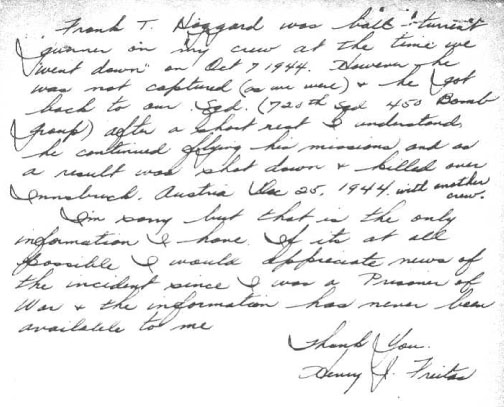 Frank T. Haggard was ball "turret"
gunner on my crew at the time we
"went down" on Oct 7 1944. However he
was not captured (as we were) & he got
back to our Sqd. (720th Sqd 450 Bomb
Group) after a short rest I understand,
he continued flying his missions, and as
a result was shot down & killed over
Innsbruck, Austria Dec 25, 1944. with another
crew.
I'm sorry but that is the only
information I have. If its at all
possible I would appreciate news of
the incident since I was a Prisoner of
War & the information has never been
available to me
Thank You.
Henry J. Freitas